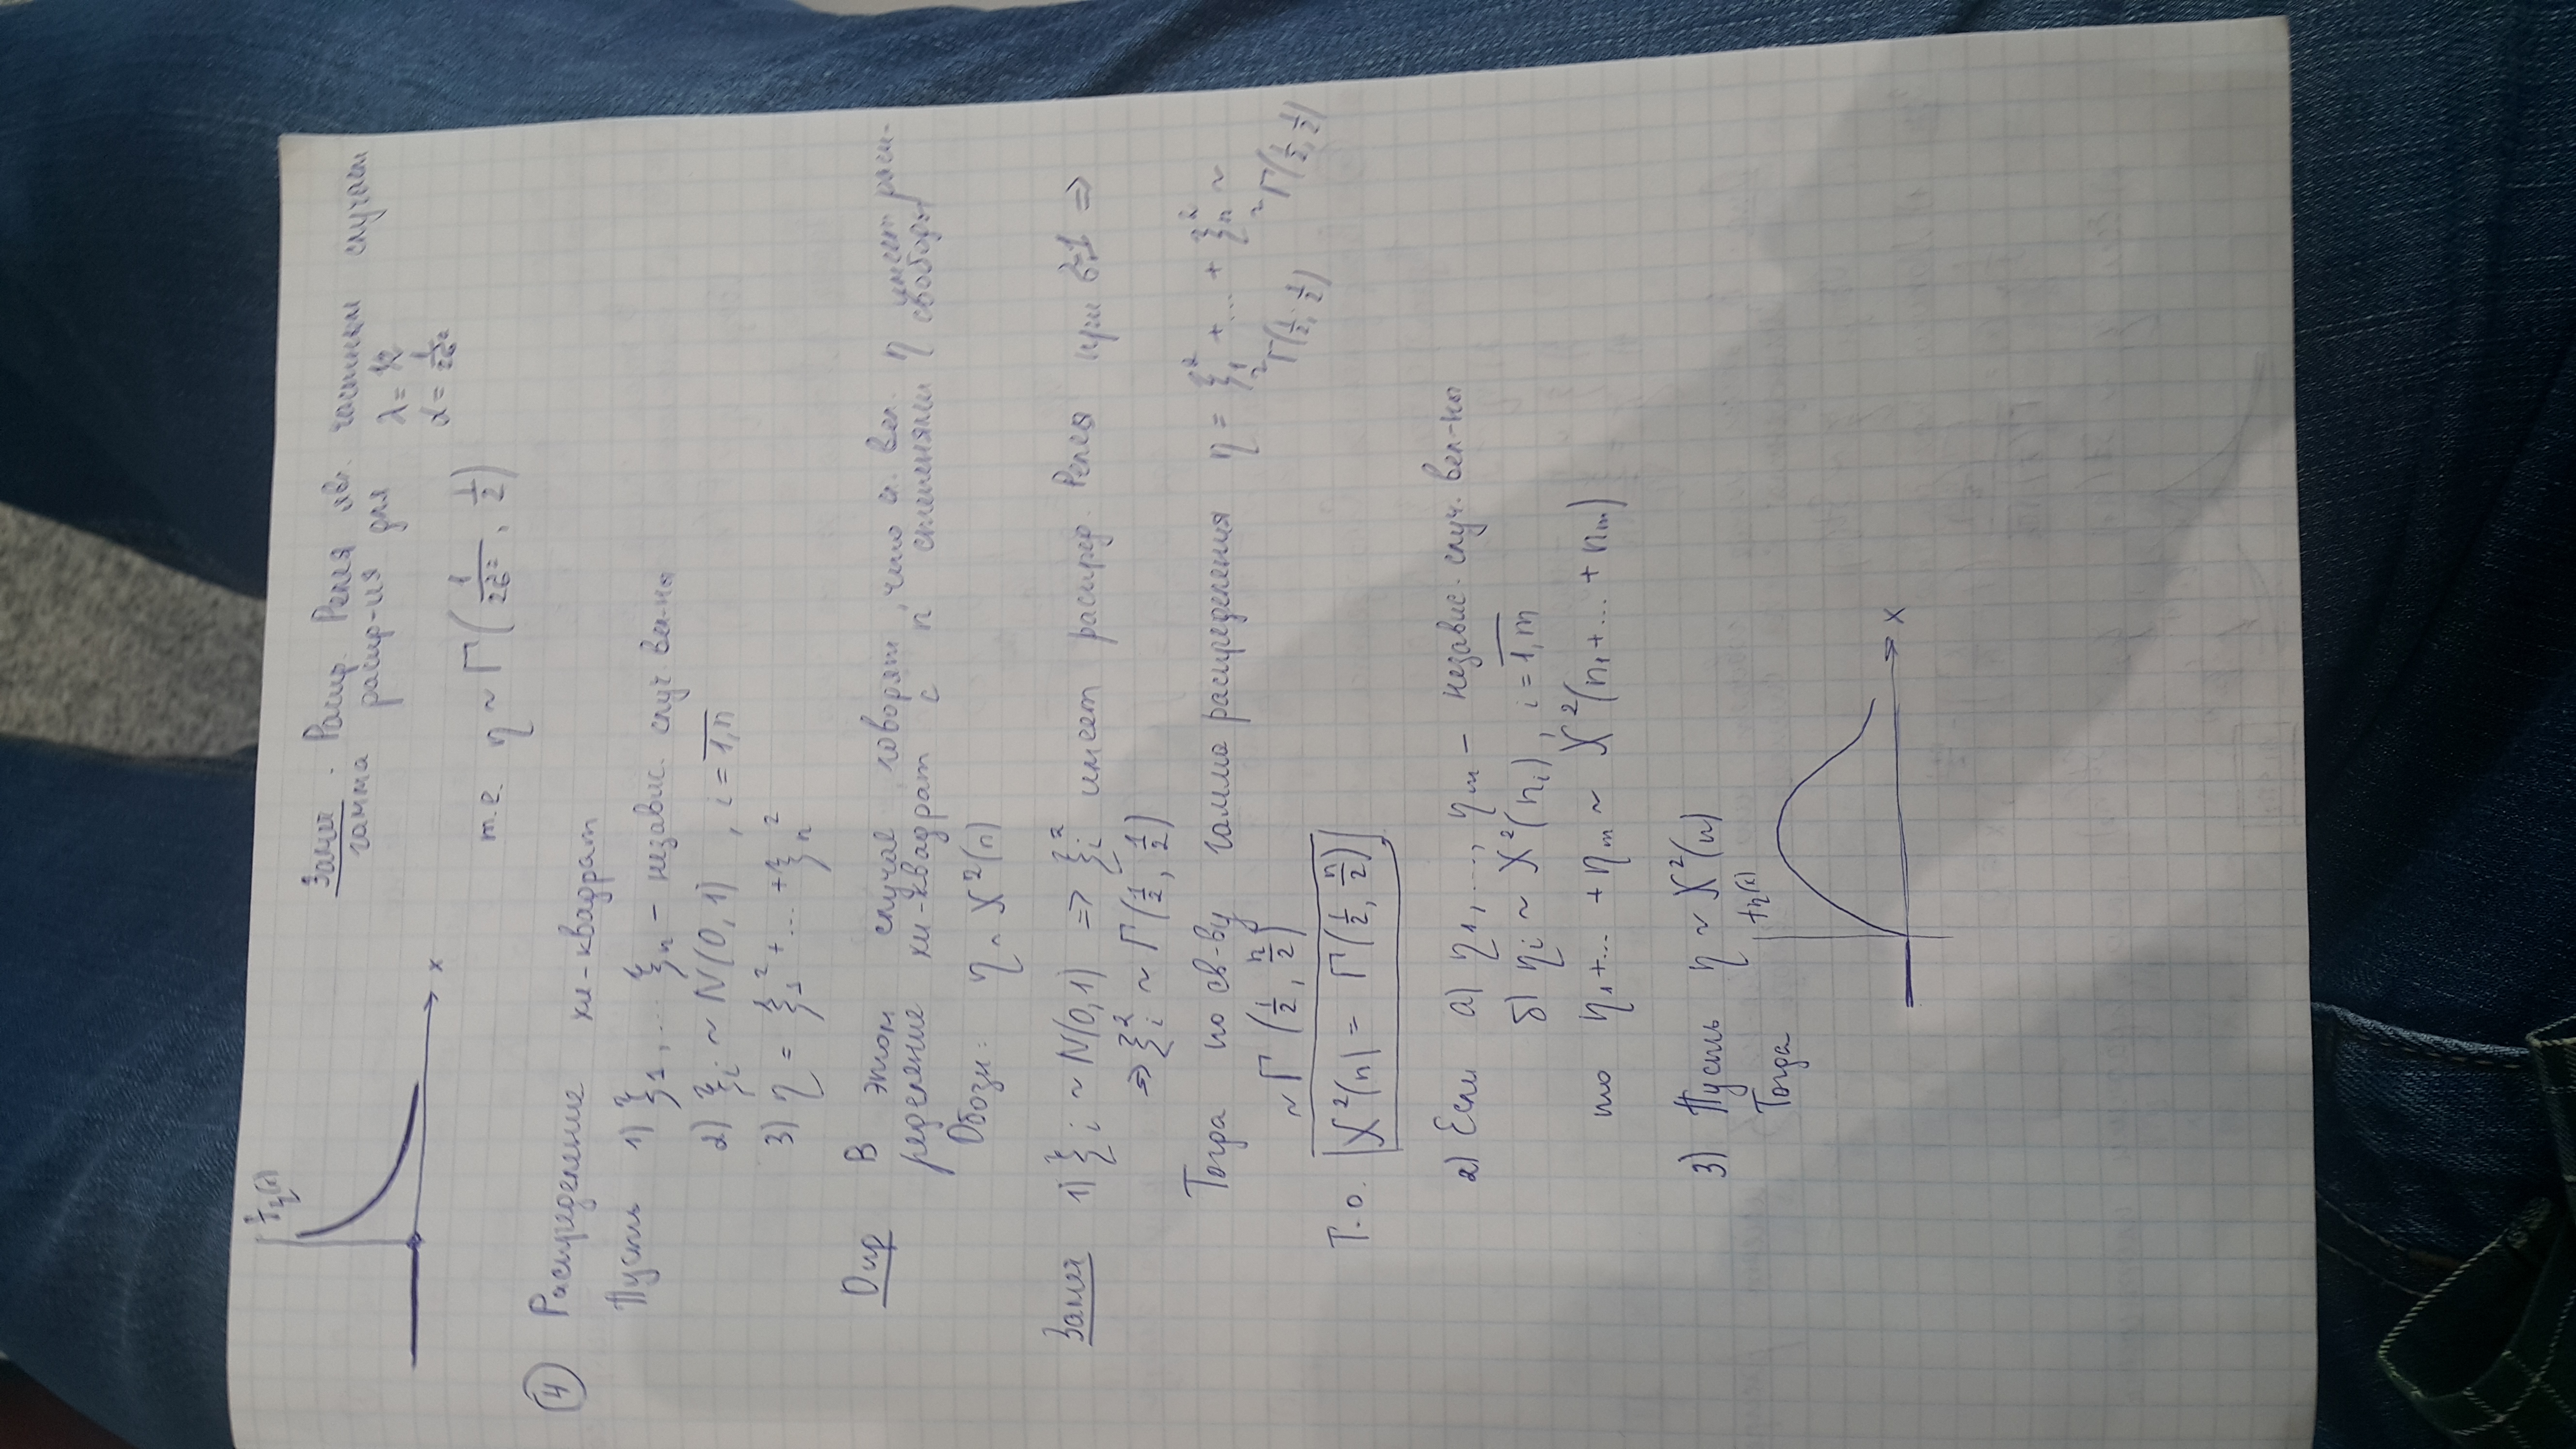 f_η(x)
x
Замеч. Распр. Релея явл. частным случаем
гамма распр-ия для λ = 1/2
α = 1/2σ²
т.е. η ~ Γ(1/2σ², 1/2)
④ Распределение хи-квадрат
Пусть 1) ξ₁, ... ξₙ – независ. случ. вел-ны
2) ξᵢ ~ N(0, 1), i = \overline{1,n}
3) η = ξ₁² + ... + ξₙ²
Опр В этом случае говорят, что сл. вел. η имеет расп-
ределение хи-квадрат с n степенями свободы
Обозн: η ~ χ²(n)
Замеч 1) ξᵢ ~ N(0,1) => ξᵢ² имеет распред. Релея при σ=1 =>
=> ξᵢ² ~ Γ(1/2, 1/2)
Тогда по св-ву гамма распределения η = ξ₁² + ... + ξₙ² ~
~Γ(1/2, 1/2) ~Γ(1/2, 1/2)
~ Γ(1/2, n/2)
Т.о. χ²(n) = Γ(1/2, n/2)
2) Если а) η₁, ..., ηₘ – независ. случ. вел-ны
б) ηᵢ ~ χ²(nᵢ), i = \overline{1,m}
то η₁ + ... + ηₘ ~ χ²(n₁ + ... + nₘ)
3) Пусть η ~ χ²(n)
Тогда f_η(x)
x